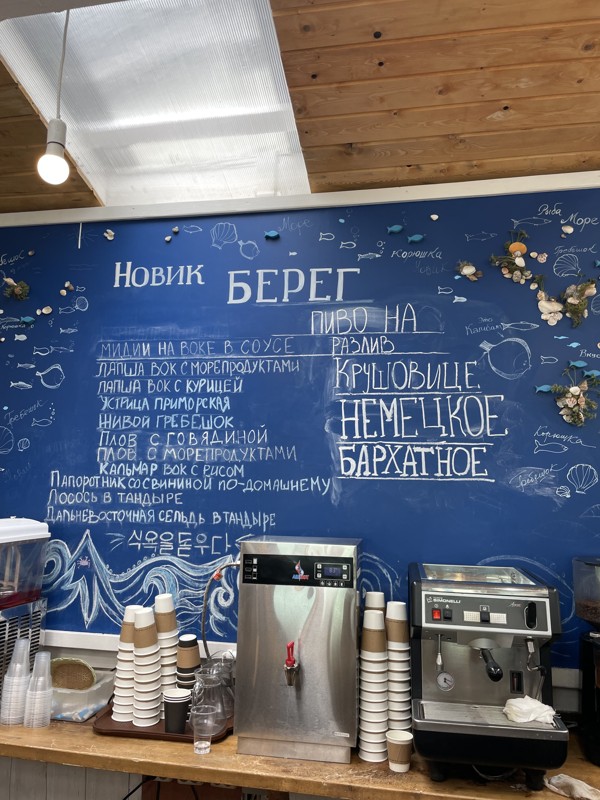 Рыба
Море
Море
Корюшка
Гребешок
НОВИК БЕРЕГ
ПИВО НА
РАЗЛИВ
КРУШОВИЦЕ
НЕМЕЦКОЕ
БАРХАТНОЕ
МИДИИ НА ВОКЕ В СОУСЕ
ЛАПША ВОК С МОРЕПРОДУКТАМИ
ЛАПША ВОК С КУРИЦЕЙ
УСТРИЦА ПРИМОРСКАЯ
ЖИВОЙ ГРЕБЕШОК
ПЛОВ С ГОВЯДИНОЙ
ПЛОВ С МОРЕПРОДУКТАМИ
КАЛЬМАР ВОК С РИСОМ
ПАПОРОТНИК СО СВИНИНОЙ ПО-ДОМАШНЕМУ
ЛОСОСЬ В ТАНДЫРЕ
ДАЛЬНЕВОСТОЧНАЯ СЕЛЬДЬ В ТАНДЫРЕ
식욕을 돋우다
Корюшка
Гребешок
SIMONELLI